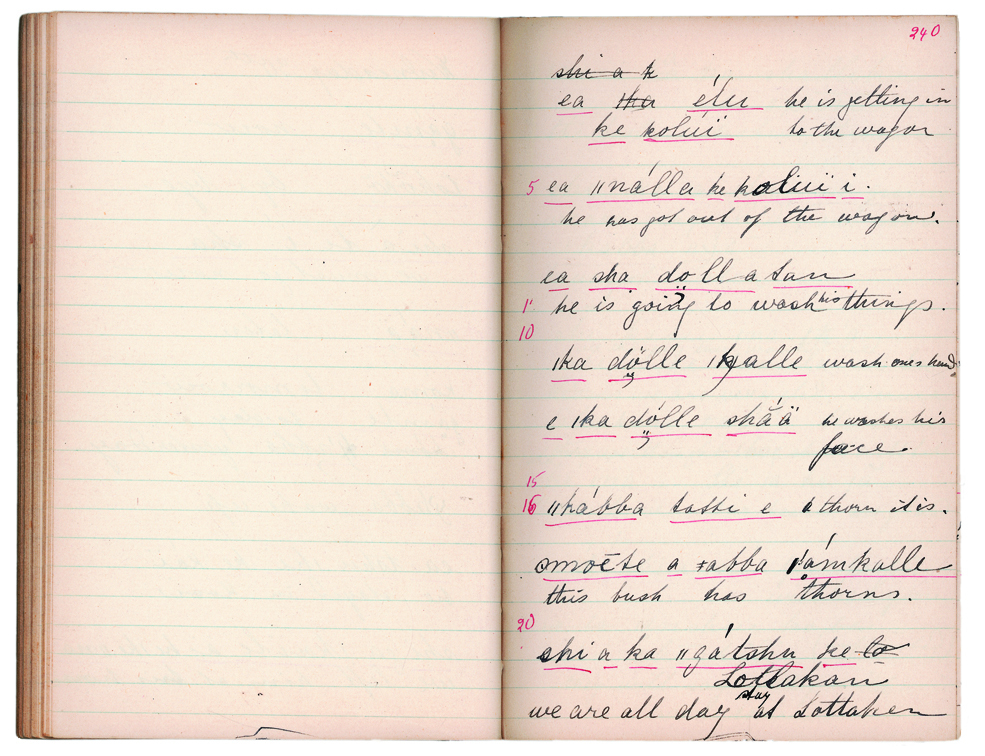 240
shi a k
ea ǀka élu he is getting in
ke kolúï to the wagon
5 ea ǁnálla ke koluï i.
he has got out of the wagon.
ea sha dolla tan
he is going to wash his things.
10
ǀka dölle ǀkgalle wash ones hands
e ǀka dólle sháä he washes his
face.
15
16 ǁkábba tatti e a thorn it is.
a rabba
this bush has thorns.
20
shi a ka ǁgátshu ke to
Lottakan
we are all day stay at Lottaken